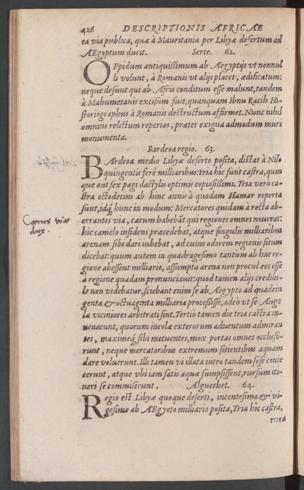 426 DESCRIPTIONIS AFRICAE
ea via publica, quæ à Mauritania per Libyæ desertum ad
AEgyptum ducit. Serte. 62.
OPpidum antiquissimum ab AEgyptijs vt nonnul
li volunt, à Romanis vt alijs placet, ædificatum:
neque desunt qui ab Afris conditum esse malunt, tandem
à Mahumetanis excisum fuit, quanquam Ibnu Rachih Hi-
storiographus à Romanis destructum affirmet. Nunc nihil
omnino relictum reperias, præter exigua admodum muri
monumenta.
Bardeoa regio. 63.
BArdeoa medio Libyæ deserto posita, distat à Nilo
quingentis ferè milliaribus: tria hic sunt castra, quin
que aut sex pagi dactylis optimis copiosissimi. Tria vero ca-
stra octodecim ab hinc annis à quodam Hamar reperta
sunt, idq; hunc in modum: Mercatores quidam à recta ab-
errantes via, cæcum habebāt qui regiones omnes nouerat:
hic camelo insidens præcedebat, atque singulis milliaribus
arenam sibi dari iubebat, ad cuius odorem regionis situm
dicebat: quum autem in quadragesimo tantum ab hac re-
gione abessent milliario, assumpta arena non procul eos esse
à regione quadam pronunciauit: quod tamen alijs credibi-
le non videbatur, sciebant enim se ab AEgypto ad quadrin
genta & octuaginta milliaria processisse, adeò vt se Auge
læ viciniores arbitrati sint. Tertio tamen die tria castra in-
uenerunt, quorum incolæ exterorum aduentum admira
tes, maximeq́; sibi metuentes, mox portas omnes occluse-
runt, neque mercatoribus extremum sitientibus aquam
dare voluerunt. Illi tamen vi illata intro tandem sese conie
cerunt, atque vbi iam satis aquæ sumpsissent, rursum iti-
neri se commiserunt. Alguechet. 64.
REgio est Libyæ quoque deserti, incentesimo & vi-
gesimo ab AEgypto milliario posita, Tria hic castra,
Cæcus viæ
dux.